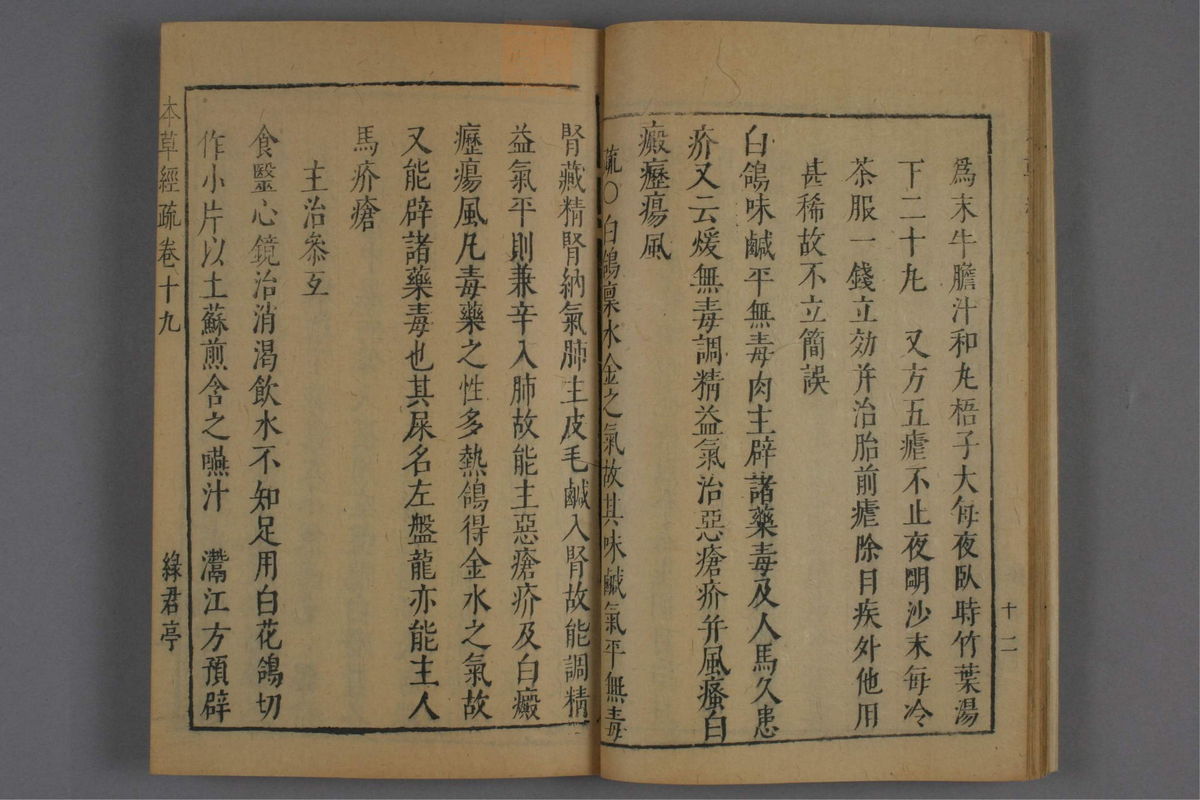 爲末牛膽汁和丸梧子大每夜臥時竹葉湯
下二十九　又方五瘧不止夜明沙末每冷
茶服一錢立効并治胎前瘧除目疾外他用
甚稀故不立簡誤
白鴿味鹹平無毒肉主辟諸藥毒及人馬久患
疥又云煖無毒調精益氣治惡瘡疥并風瘙白
癜癧瘍風
疏〇白鴿禀水金之氣故其味鹹氣平無毒
腎藏精腎納氣肺主皮毛鹹入腎故能調精
益氣平則兼辛入肺故能主惡瘡疥及白癜
癧瘍風凡毒藥之性多熱鴿得金水之氣故
又能辟諸藥毒也其屎名左盤龍亦能主人
馬疥瘡
主治叅互
食醫心鏡治消渴飲水不知足用白花鴿切
作小片以土蘇煎含之嚥汁　灊江方預辟
本草經疏卷十九
綠君亭
十二